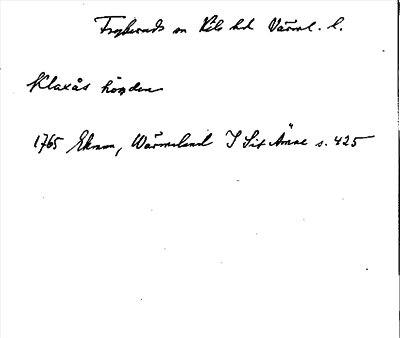 Fryksände sn Kils hd Värml. l.
Klaxås höjden
1765 Ekman, Wärmeland I Sit Ämne s. 425